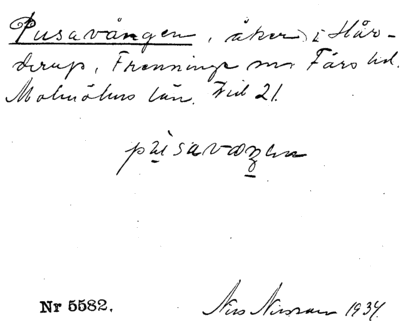 Pusavången, åker i Hår-
derup, Frenninge sn Färs hd.
Malmöhus län. Fid 21.
pusavaŋen
Nr 5582. Nils Nilsson 1934.